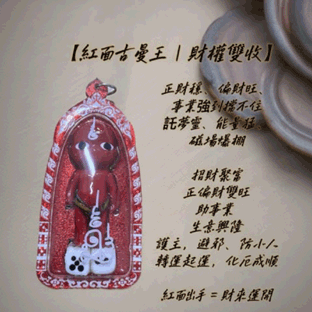 【紅面古曼王｜財權雙收】
正財穩、偏財旺、
事業強到擋不住
託夢靈、能量猛、
磁場爆棚
招財聚富
正偏財雙旺
助事業
生意興隆
護主，避邪、防小人
轉運起運，化厄成順
紅面出手＝財來運開